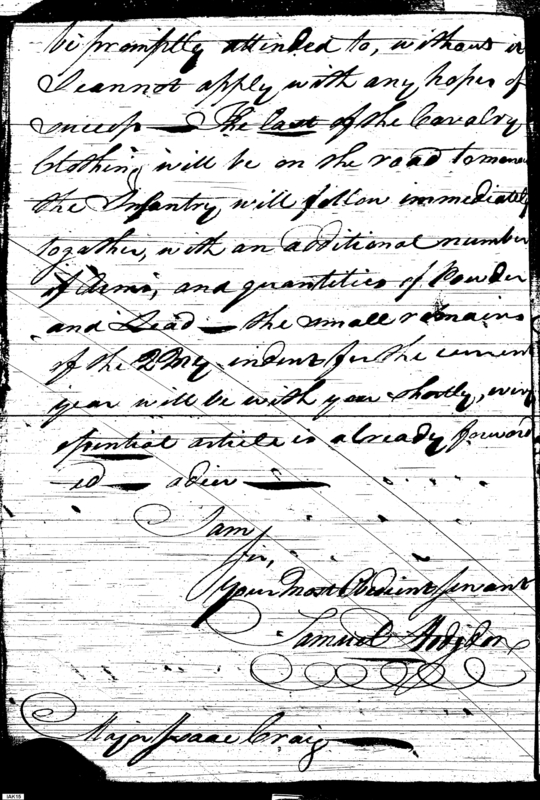 be promptly attended to, without it
I cannot apply with any hopes of
success — The last of the Cavalry
Clothing will be on the road tomorrow
the Infantry will follow immediately
together, with an additional number
of Arms, and quantities of Powder
and Lead — the small remains
of the 2 Mr indent for the current
year will be with you shortly, every
essential article is already forward
ed — adieu —
I am
Sir,
your most Obedient Servant
Samuel Hodgdon
Major Isaac Craig
IAK16